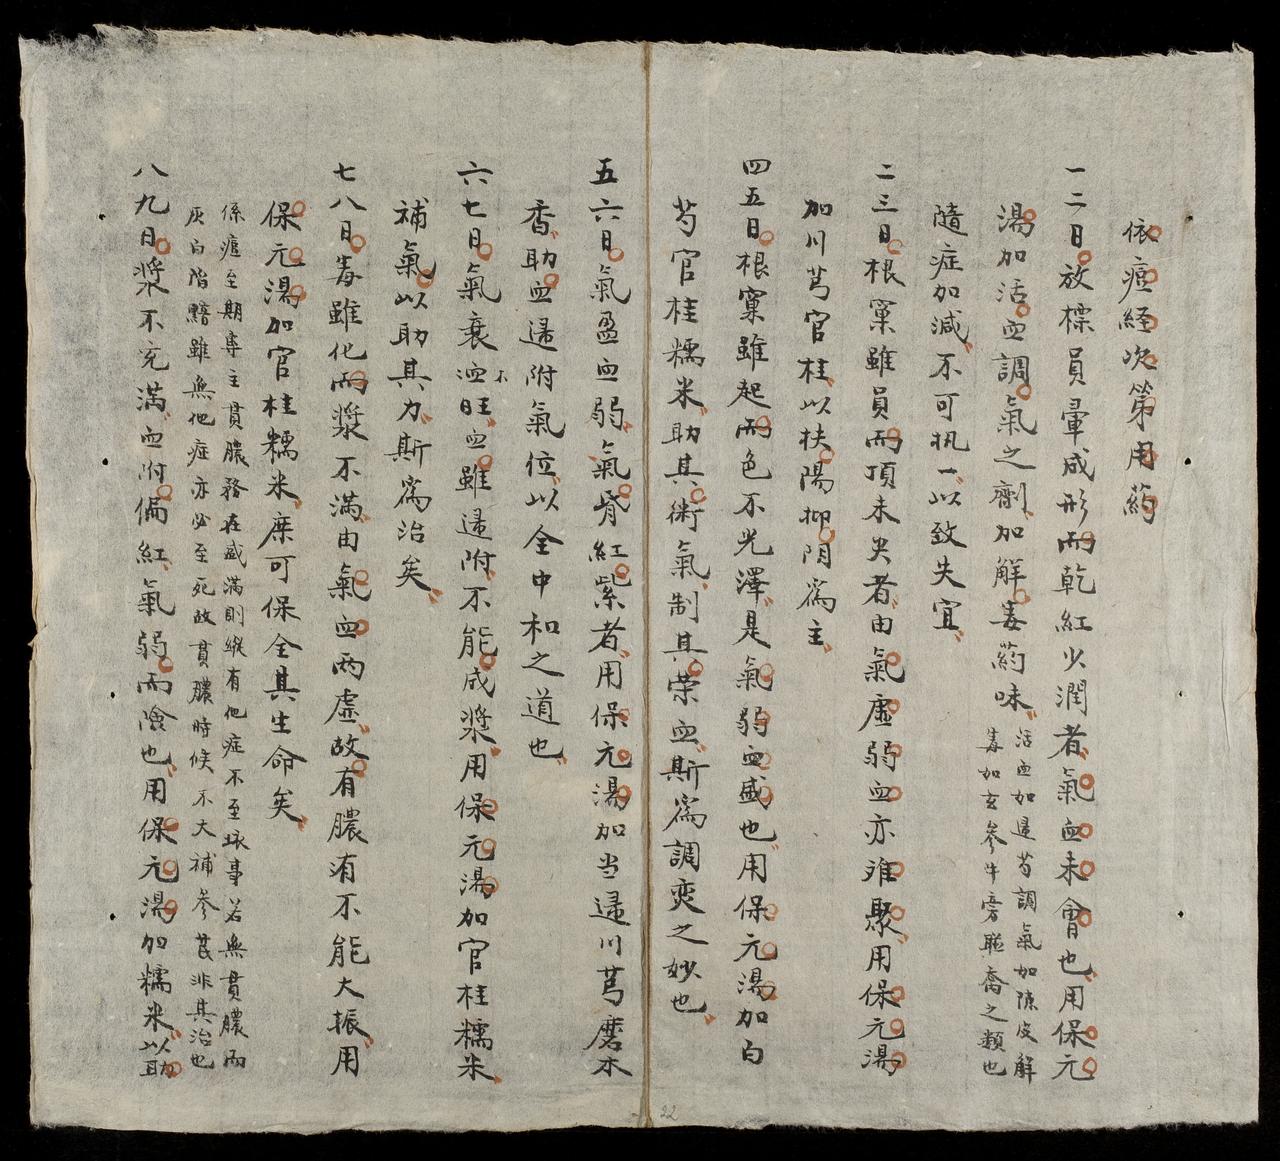 依痘経次第用葯
一二日放標員暈成形而乾紅少潤者氣血未會也用保元
湯加活血調氣之劑加解毒葯味
活血加歸芍調氣加陳皮解
毒如玄參牛蒡連喬之類也
隨症加減不可执一以致失宜
二三日根窠雖員而頂未尖者由氣虛弱血亦难聚用保元湯
加川芎官桂以扶陽抑阴爲主
四五日根窠雖起而色不光澤是氣弱血盛也用保元湯加白
芍官桂糯米助其衛氣制其荣血斯爲調爕之妙也
五六日氣盈血弱氣骨紅紫者用保元湯加当歸川芎磨木
香助血歸附氣位以全中和之道也
六七日氣衰血不旺血雖歸附不能成漿用保元湯加官桂糯米
補氣以助其力斯爲治矣
七八日毒雖化而漿不滿由氣血两虛故有膿有不能大振用
保元湯加官桂糯米庶可保全其生命矣
係痘至期專主貫膿務在盛滿則縱有他症不至球事若無貫膿而
灰白陷黯雖無他症亦必至死故貫膿時候不大補參芪非其治也
八九日漿不充滿血附偏紅氣弱而險也用保元湯加糯米以助
22